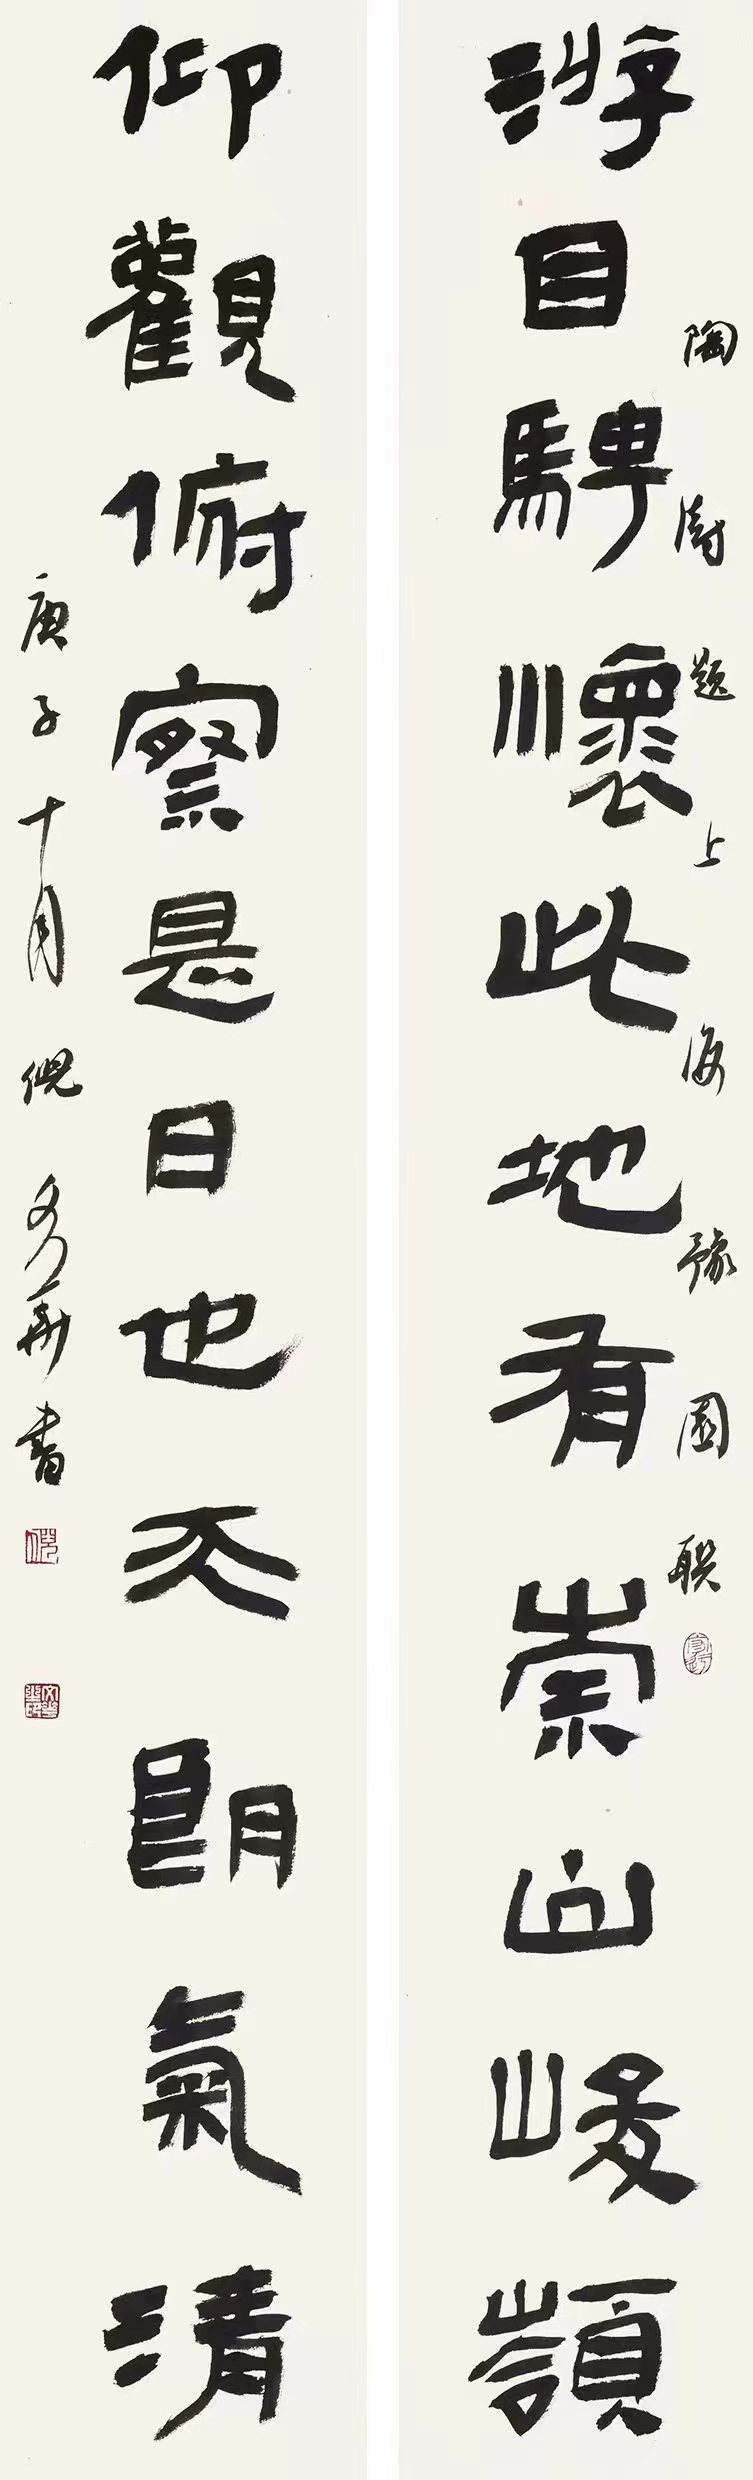 游目騁懷此地有崇山峻嶺
陶澍題上海豫園聯
仰觀俯察是日也天朗氣清
庚子十月倪文華書